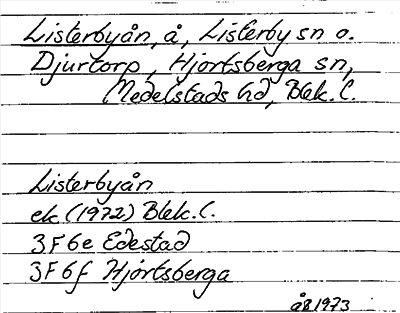 Listerbyån, å, Listerby sn o.
Djurtorp, Hjortsberga sn,
Medelstads hd, Blek. l.
Listerbyån
ek (1972) Blek. l.
3F6e Edestad
3F6f Hjortsberga
åB 1973